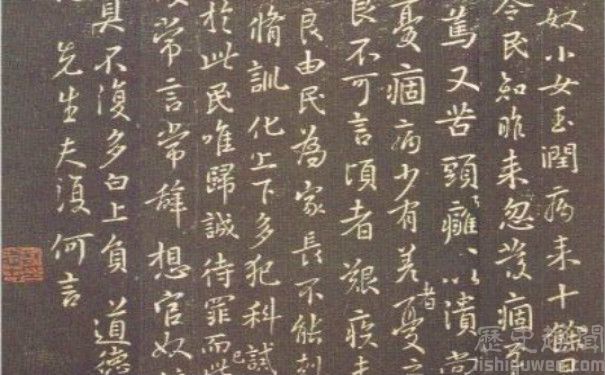 奴小女玉潤病来十餘日
令民知昨来忽發痼至
篤又苦頭癰〻以潰尚
憂痼病少有差者憂之
良不可言頃者艱疾未
良由民為家長不能剋
脩訓化上下多犯科誡
於此民唯歸誠待罪而已
常言常辭想官奴
具不復多白上負道德
先生夫復何言
歷史趣聞
lishiquwen.com